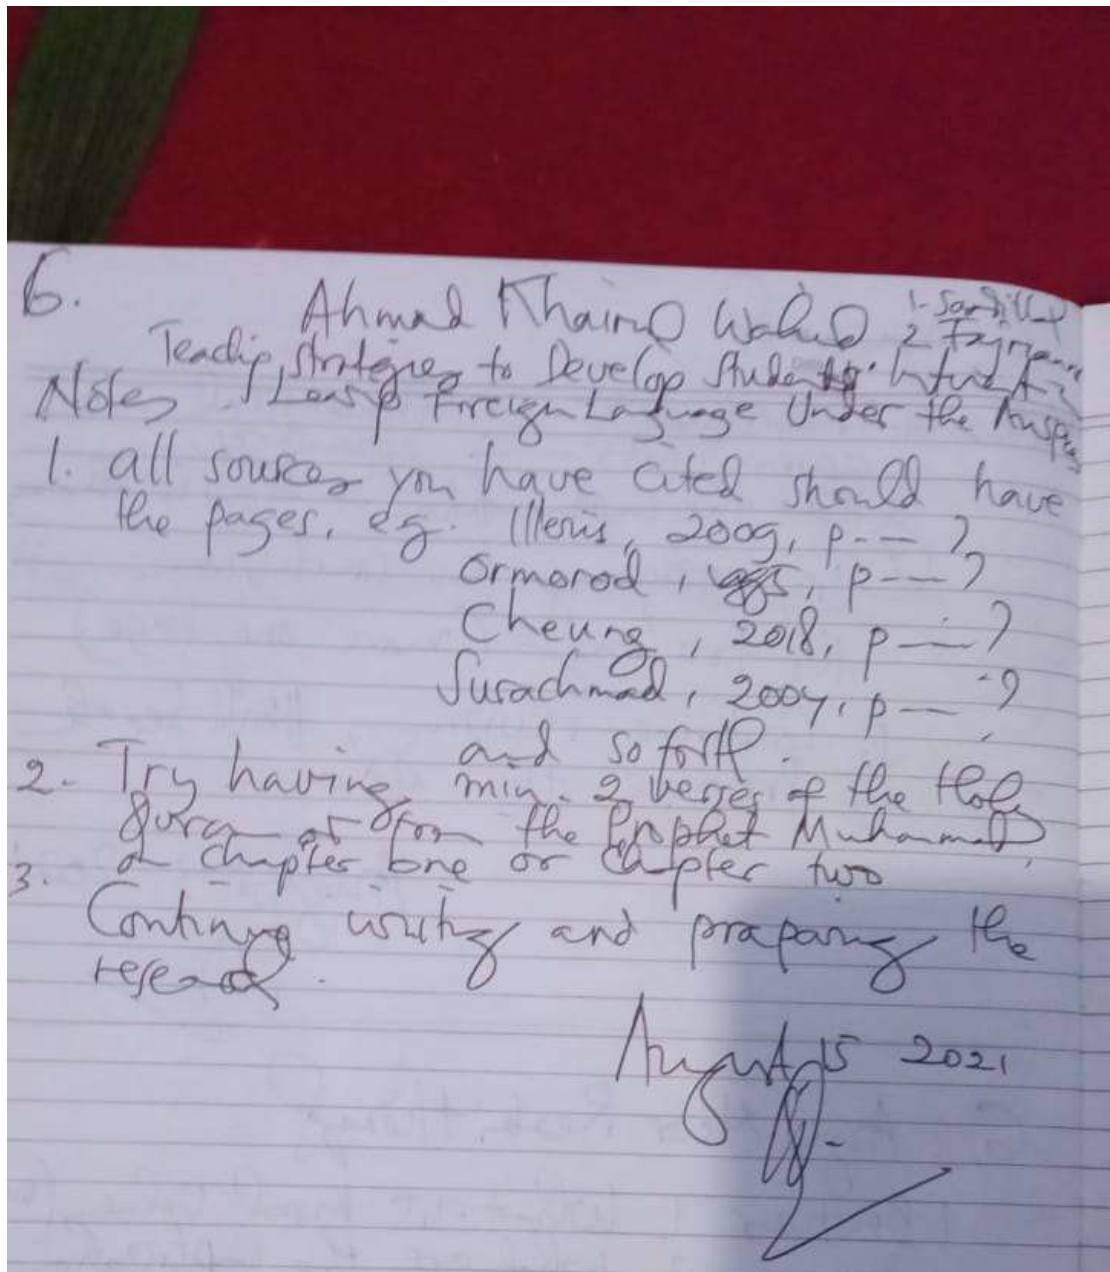 6.
Ahmad Khairul Wahid
1.
2
Teaching Strategies to Develop Students'
Notes Foreign Language Under the
1. all sources you have cited should have
the pages, eg. Illeris, 2009, p--- ?
Ormorod, p---?
Cheung, 2018, p---?
Surachmad, 2004, p--- ?
and so forth.
2. Try having min. 2 verses of the Holy
Quran or from the Prophet Muhammad
chapter one or chapter two
3.
Continue writing and preparing the
research.
August 15 2021